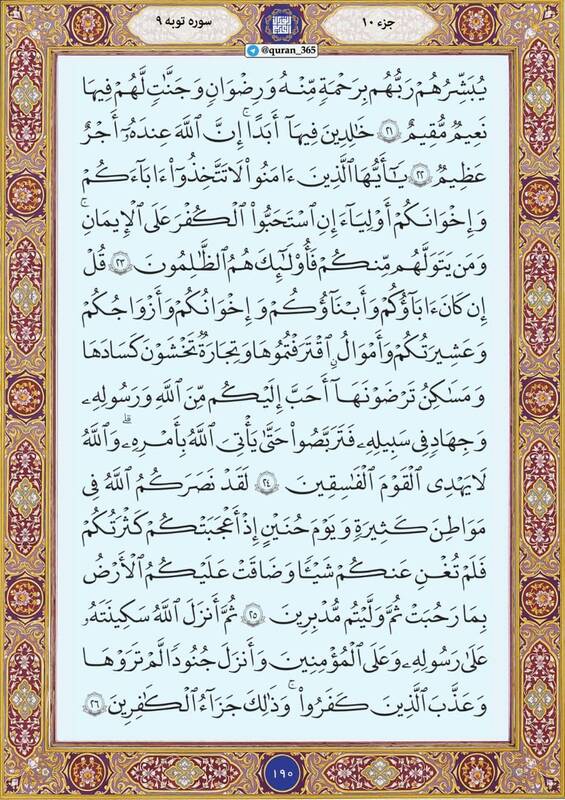 جزء ۱۰
سوره توبه ۹
@quran_365
يُبَشِّرُهُمْ رَبُّهُم بِرَحْمَةٍ مِّنْهُ وَرِضْوَانٍ وَجَنَّاتٍ لَّهُمْ فِيهَا
نَعِيمٌ مُّقِيمٌ ۝٢١ خَالِدِينَ فِيهَآ أَبَدًا ۚ إِنَّ ٱللَّهَ عِندَهُۥٓ أَجْرٌ
عَظِيمٌ ۝٢٢ يَـٰٓأَيُّهَا ٱلَّذِينَ ءَامَنُوا۟ لَا تَتَّخِذُوٓا۟ ءَابَآءَكُمْ
وَإِخْوَانَكُمْ أَوْلِيَآءَ إِنِ ٱسْتَحَبُّوا۟ ٱلْكُفْرَ عَلَى ٱلْإِيمَانِ ۚ
وَمَن يَتَوَلَّهُم مِّنكُمْ فَأُو۟لَـٰٓئِكَ هُمُ ٱلظَّـٰلِمُونَ ۝٢٣ قُلْ
إِن كَانَ ءَابَآؤُكُمْ وَأَبْنَآؤُكُمْ وَإِخْوَانُكُمْ وَأَزْوَاجُكُمْ
وَعَشِيرَتُكُمْ وَأَمْوَالٌ ٱقْتَرَفْتُمُوهَا وَتِجَارَةٌ تَخْشَوْنَ كَسَادَهَا
وَمَسَاكِنُ تَرْضَوْنَهَآ أَحَبَّ إِلَيْكُم مِّنَ ٱللَّهِ وَرَسُولِهِۦ
وَجِهَادٍ فِى سَبِيلِهِۦ فَتَرَبَّصُوا۟ حَتَّىٰ يَأْتِىَ ٱللَّهُ بِأَمْرِهِۦ ۗ وَٱللَّهُ
لَا يَهْدِى ٱلْقَوْمَ ٱلْفَاسِقِينَ ۝٢٤ لَقَدْ نَصَرَكُمُ ٱللَّهُ فِى
مَوَاطِنَ كَثِيرَةٍ وَيَوْمَ حُنَيْنٍ إِذْ أَعْجَبَتْكُمْ كَثْرَتُكُمْ
فَلَمْ تُغْنِ عَنكُمْ شَيْـًٔا وَضَاقَتْ عَلَيْكُمُ ٱلْأَرْضُ
بِمَا رَحُبَتْ ثُمَّ وَلَّيْتُم مُّدْبِرِينَ ۝٢٥ ثُمَّ أَنزَلَ ٱللَّهُ سَكِينَتَهُۥ
عَلَىٰ رَسُولِهِۦ وَعَلَى ٱلْمُؤْمِنِينَ وَأَنزَلَ جُنُودًا لَّمْ تَرَوْهَا
وَعَذَّبَ ٱلَّذِينَ كَفَرُوا۟ ۚ وَذَٰلِكَ جَزَآءُ ٱلْكَافِرِينَ ۝٢٦
۱۹۰